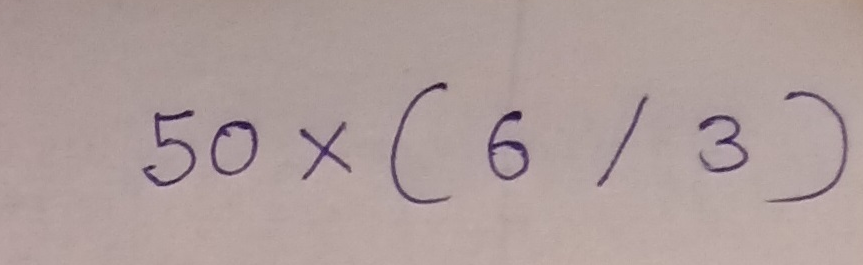 50 × ( 6 / 3 )